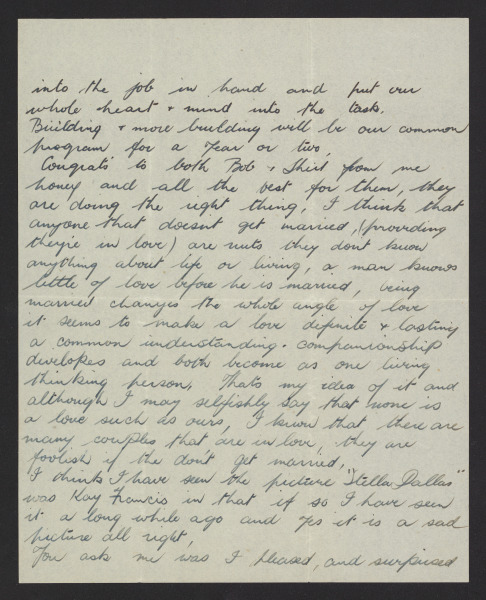 into the job in hand and put our
whole heart & mind into the task.
Building & more building will be our common
program for a year or two,
Congrats to both Bob & Shirl from me
honey and all the best for them, they
are doing the right thing, I think that
anyone that doesnt get married, (providing
theyre in love) are nuts they dont know
anything about life or living, a man knows
little of love before he is married, being
married changes the whole angle of love
it seems to make a love definite & lasting
a common understanding & companionship
developes and both become as one living
thinking person, Thats my idea of it and
although I may selfishly say that none is
a love such as ours, I know that there are
many couples that are in love, they are
foolish if the don't get married,
I think I have seen the picture "Stella Dallas"
was Kay Francis in that if so I have seen
it a long while ago and yes it is a sad
picture all right,
You ask me was I pleased, and surprised